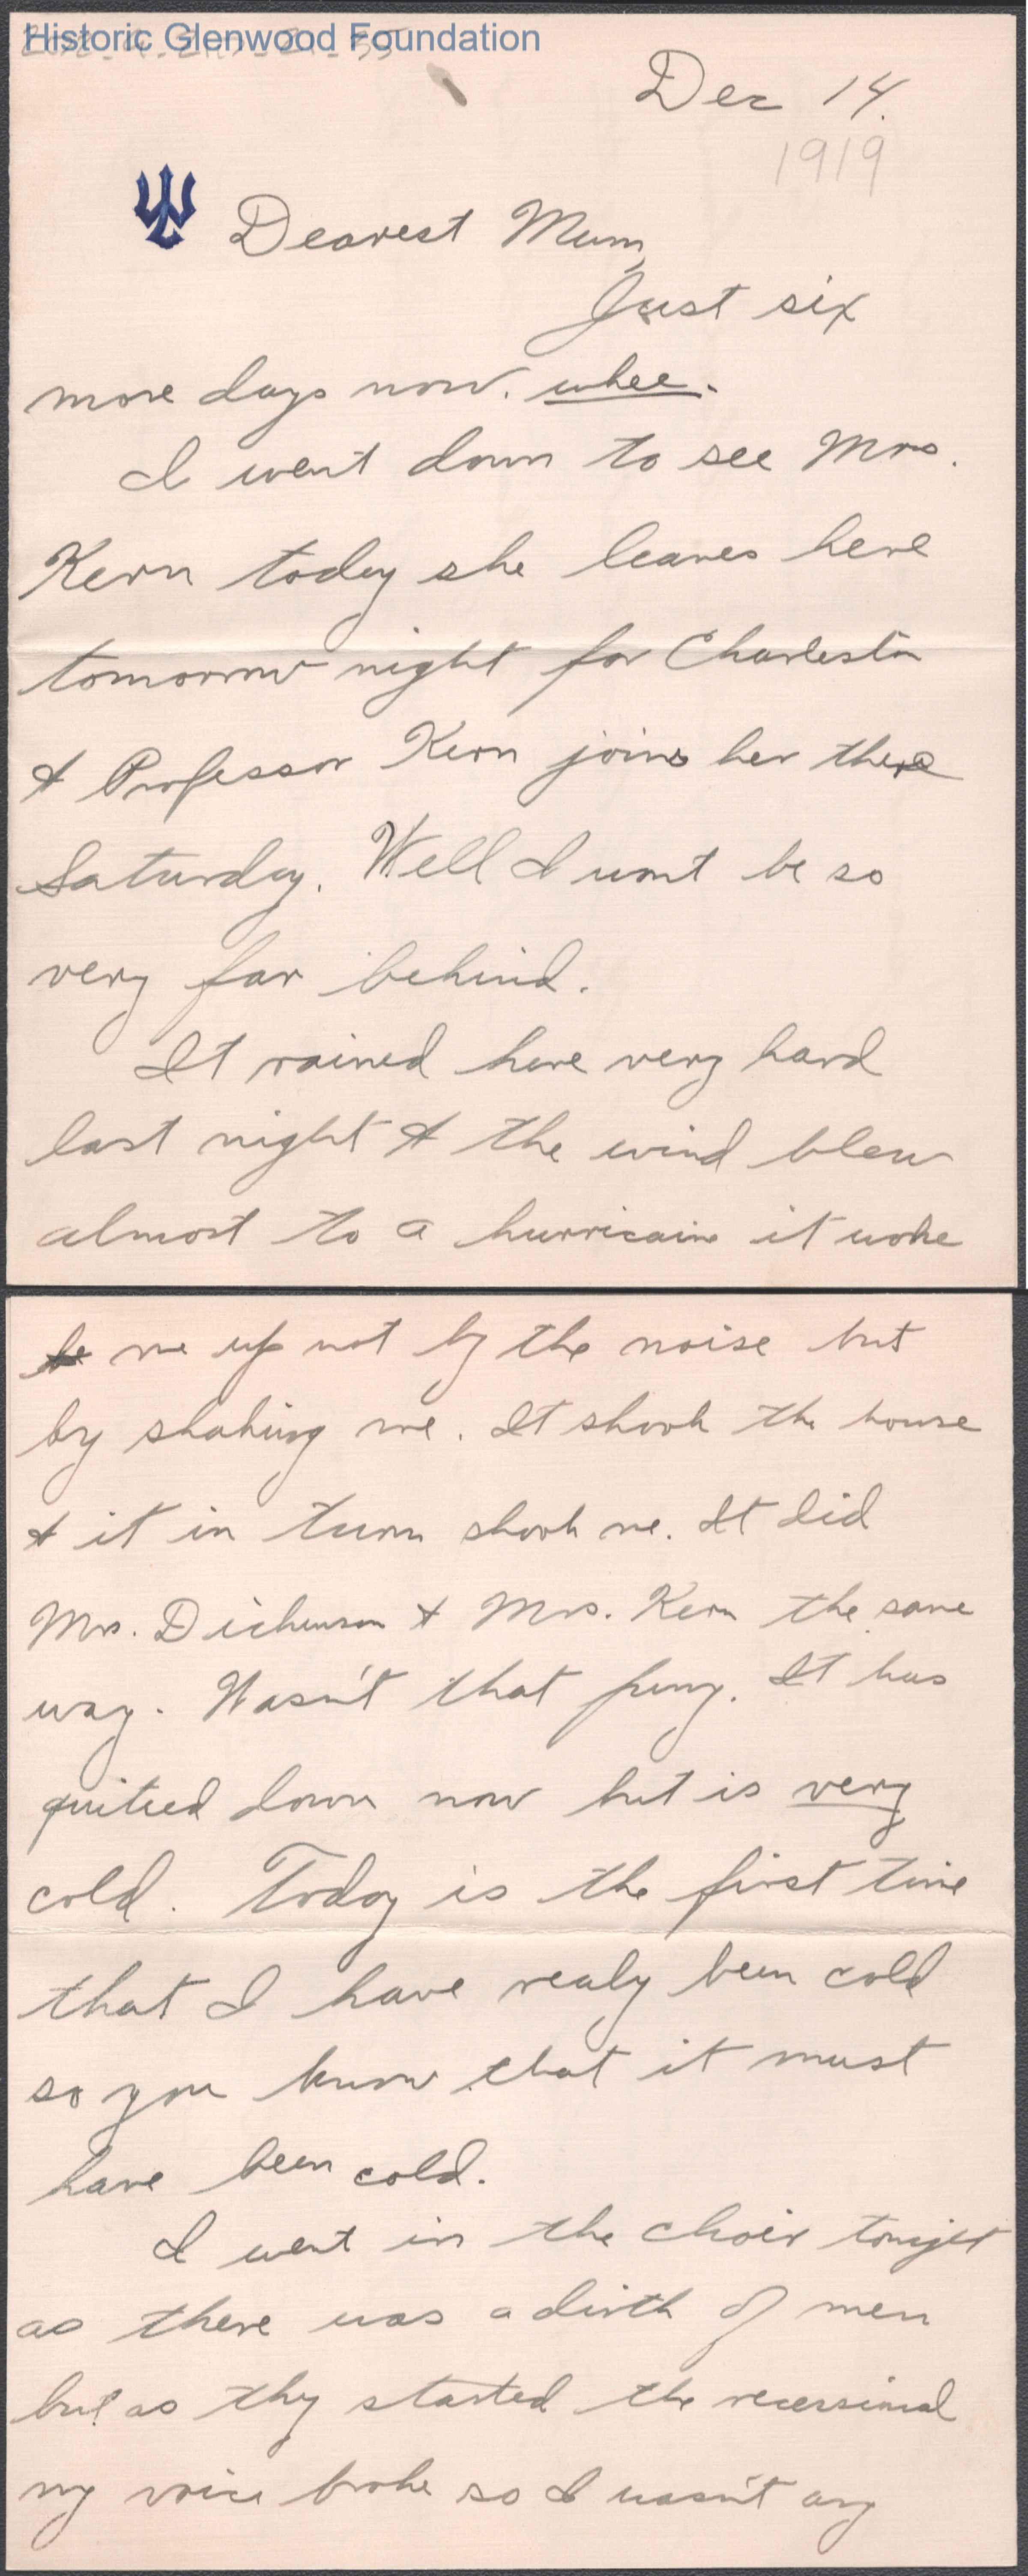 Historic Glenwood Foundation
Dec 14.
1919
Dearest Mum,
Just six
more days now. whee.
I went down to see Mrs.
Kern today she leaves here
tomorrow night for Charleston
& Professor Kern joins her there
Saturday. Well I wont be so
very far behind.
It rained here very hard
last night & the wind blew
almost to a hurricaine it woke
me up not by the noise but
by shaking me. It shook the house
& it in turn shook me. It did
Mrs. Dickenson & Mrs. Kern the same
way. Wasn't that funy. It has
quiteed down now but is very
cold. Today is the first time
that I have realy been cold
so you know that it must
have been cold.
I went in the choir tonight
as there was a dirth of men
but as they started the recessional
my voice broke so I wasn't any